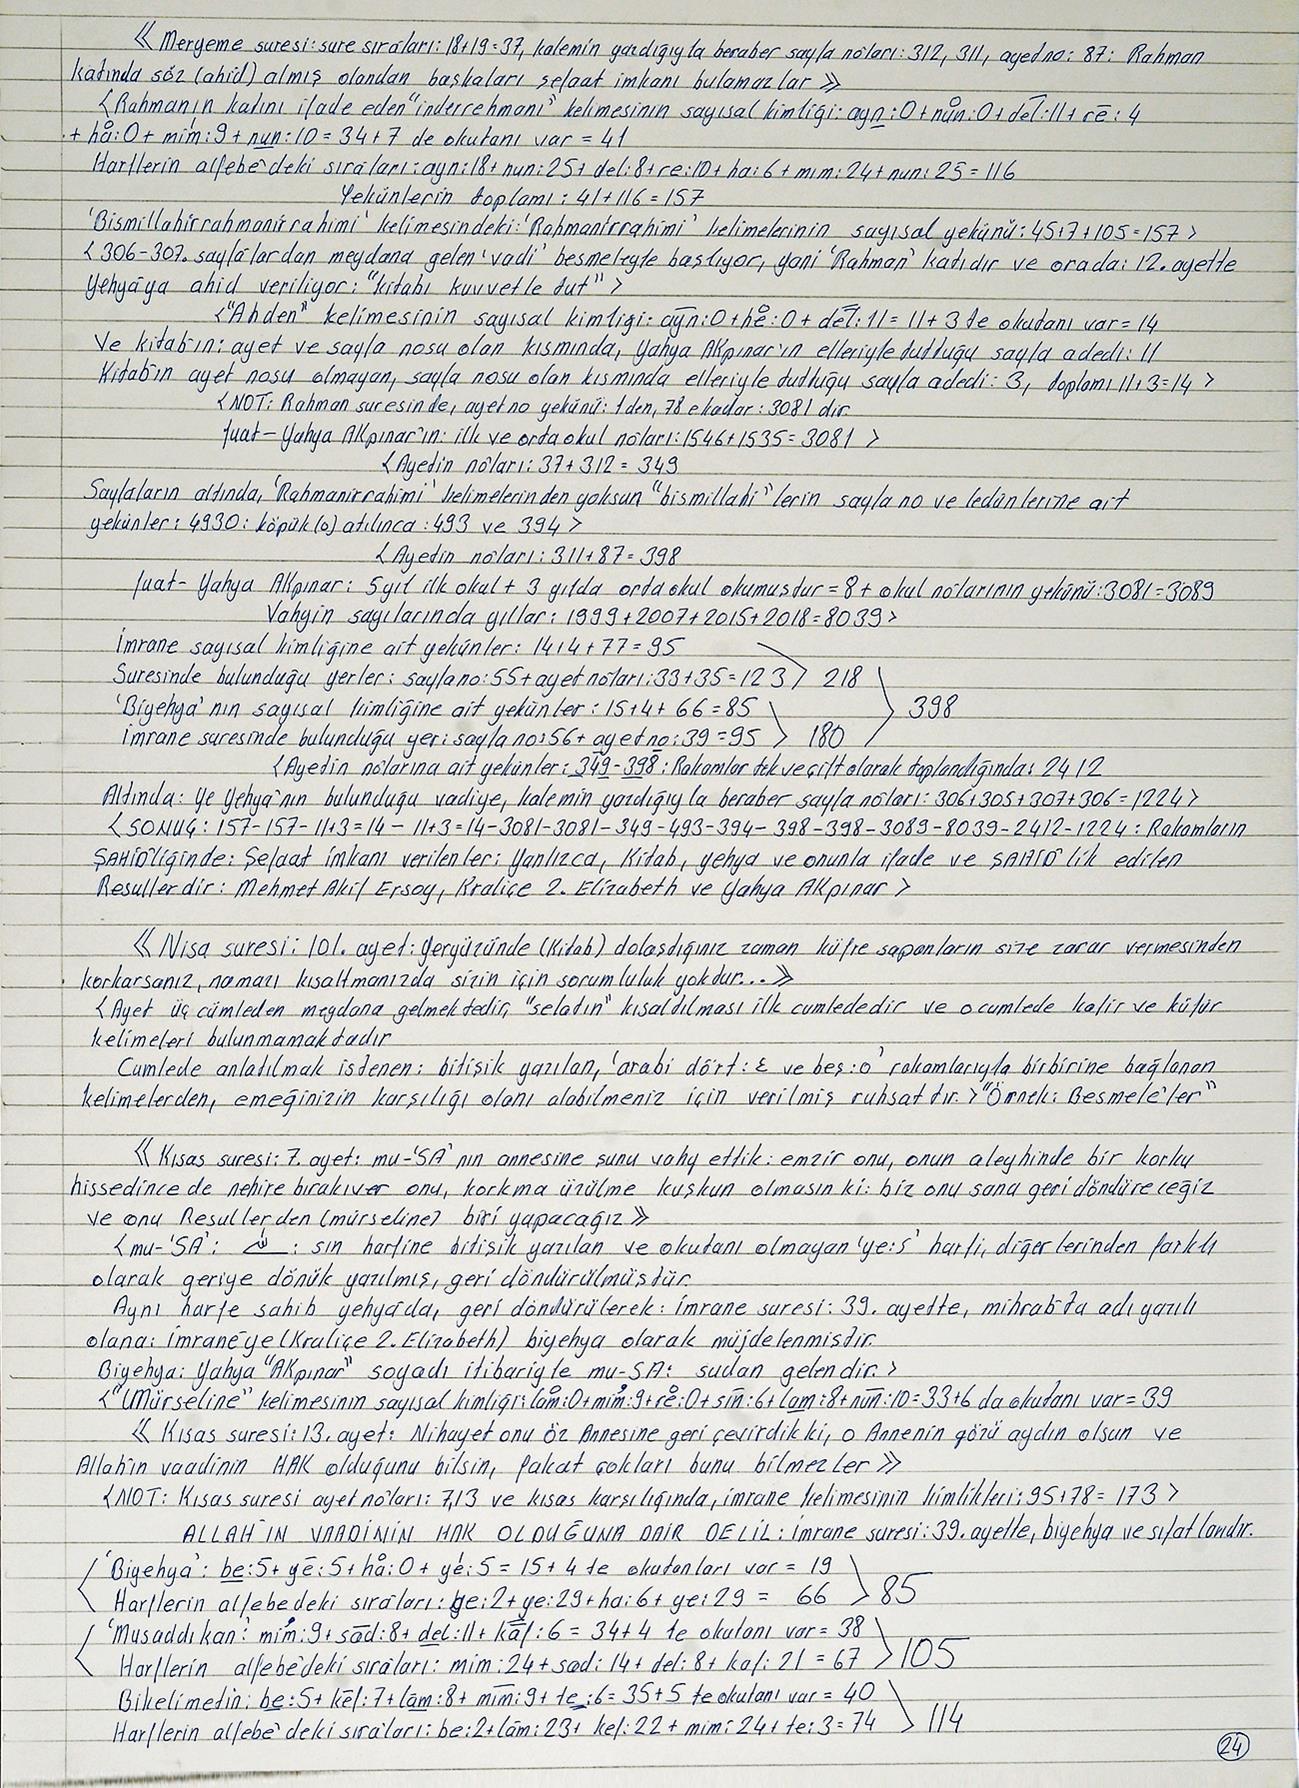 《 Meryeme suresi: sure sıraları: 18+19=37, kalemin yazdığıyla beraber sayfa nôları: 312, 311, ayed no: 87: Rahman
katında söz (ahid) almış olandan başkaları şefaat imkanı bulamazlar 》
〈Rahmanın katını ifade eden "inderrehmani" kelimesinin sayısal kimliği: ayn:0+nûn:0+del:11+re:4
+ hâ:0+mim:9+nun:10=34+7 de okutanı var = 41
Harflerin alfebe'deki sıraları: ayn:18+nun:25+del:8+re:10+ha:6+mim:24+nun:25=116
Yekünlerin toplamı: 41+116=157
'Bismillahirrahmanirrahimi' kelimesindeki: 'Rahmanirrahimi' kelimelerinin sayısal yekünü: 45+7+105=157 〉
〈 306-307. sayfa'lardan meydana gelen 'vadi' besmeleyle başlıyor, yani 'Rahman' katıdır ve orada: 12. ayette
Yehya'ya ahid veriliyor: "kitabı kuvvetle tut" 〉
〈"Ahden" kelimesinin sayısal kimliği: ayn:0+he:0+del:11=11+3 te okutanı var=14
Ve kitab'ın: ayet ve sayfa nosu olan kısmında, Yahya AKpınar'ın elleriyle tuttuğu sayfa adedi: 11
Kitab'ın ayet nosu olmayan, sayfa nosu olan kısmında elleriyle tuttuğu sayfa adedi: 3, toplamı 11+3=14 〉
〈NOT: Rahman suresinde, ayet no yekünü: 1 den, 78 e kadar: 3081 dir.
fuat-Yahya AKpınar'ın: ilk ve orta okul nôları: 1546+1535=3081 〉
〈Ayetin nôları: 37+312=349
Sayfaların altında, 'Rahmanirrahimi' kelimelerinden yoksun "bismillahi"lerin sayfa no ve ledünlerine ait
yekünler: 4930: köpük (o) atılınca: 493 ve 394 〉
〈Ayetin nôları: 311+87=398
fuat-Yahya AKpınar: 5 yıl ilk okul + 3 yılda orta okul okumuştur = 8+ okul nôlarının yekünü: 3081=3089
Vahyin sayılarında yıllar: 1999+2007+2015+2018=8039 〉
İmrane sayısal kimliğine ait yekünler: 14+4+77=95
Suresinde bulunduğu yerler: sayfa no:55+ayet nôları:33+35=123 〉 218
'Biyehya'nın sayısal kimliğine ait yekünler: 15+4+66=85 〉 398
İmrane suresinde bulunduğu yer: sayfa no:56+ayet no:39=95 〉 180
〈Ayetin nôlarına ait yekünler: 349-398: Rakamlar tek ve çift olarak toplandığında: 2412
Altında: Ye Yehya'nın bulunduğu vadiye, kalemin yazdığıyla beraber sayfa nôları: 306+305+307+306=1224 〉
〈 SONUÇ: 157-157-11+3=14-11+3=14-3081-3081-349-493-394-398-398-3089-8039-2412-1224: Rakamların
ŞAHİD'liğinde: Şefaat imkanı verilenler: Yanlızca, Kitab, yehya ve onunla ifade ve ŞAHİD'lik edilen
Resullerdir: Mehmet Akif Ersoy, Kraliçe 2. Elizabeth ve Yahya AKpınar 〉
《 Nisa suresi: 101. ayet: Yeryüzünde (Kitab) dolaştığınız zaman küfre sapanların size zarar vermesinden
korkarsanız, namazı kısaltmanızda sizin için sorumluluk yoktur... 》
〈 Ayet üç cümleden meydana gelmektedir, "selatın" kısaltılması ilk cumlededir ve o cumlede kafir ve küfür
kelimeleri bulunmamaktadır
Cumlede anlatılmak istenen: bitişik yazılan, 'arabi dört: ٤ ve beş: o' rakamlarıyla birbirine bağlanan
kelimelerden, emeğinizin karşılığı olanı alabilmeniz için verilmiş ruhsattır. 〉 "Örnek: Besmele'ler"
《 Kısas suresi: 7. ayet: mu-'SA'nın annesine şunu vahy ettik: emzir onu, onun aleyhinde bir korku
hissedince de nehire bırakıver onu, korkma üzülme kuşkun olmasın ki: biz onu sana geri döndüreceğiz
ve onu Resullerden (mürseline) biri yapacağız 》
〈mu-'SA': : sin harfine bitişik yazılan ve okutanı olmayan 'ye:5' harfi, diğerlerinden farklı
olarak geriye dönük yazılmış, geri döndürülmüştür.
Aynı harfe sahib yehya'da, geri döndürülerek: İmrane suresi: 39. ayette, mihrab'ta adı yazılı
olana: İmrane'ye (Kraliçe 2. Elizabeth) biyehya olarak müjdelenmiştir.
Biyehya: Yahya "AKpınar" soyadı itibariyle mu-SA: sudan gelendir. 〉
〈"(Mürseline" kelimesinin sayısal kimliği: lâm:0+mim:9+re:0+sin:6+lam:8+nun:10=33+6 da okutanı var=39
《 Kısas suresi: 13. ayet: Nihayet onu Öz Annesine geri çevirdik ki, o Annenin gözü aydın olsun ve
Allah'ın vaadinin HAK olduğunu bilsin, fakat çokları bunu bilmezler 》
〈NOT: Kısas suresi ayet nôları: 7,13 ve kısas karşılığında, imrane kelimesinin kimlikleri: 95+78=173 〉
ALLAH'IN VAADİNİN HAK OLDUĞUNA DAİR DELİL: İmrane suresi: 39. ayette, biyehya ve sıfatlarıdır.
'Biyehya': be:5+ye:5+hâ:0+ye:5=15+4 te okutanları var = 19
Harflerin alfebedeki sıraları: be:2+ye:29+ha:6+ye:29 = 66 〉85
'Musaddıkan': mim:9+sad:8+del:11+kaf:6=34+4 te okutanı var=38
Harflerin alfebe'deki sıraları: mim:24+sad:14+del:8+kaf:21=67 〉105
Bikelimetin: be:5+kef:7+lam:8+mim:9+te:6=35+5 te okutanı var=40
Harflerin alfebe'deki sıraları: be:2+lâm:23+kef:22+mim:24+te:3=74 〉114
24